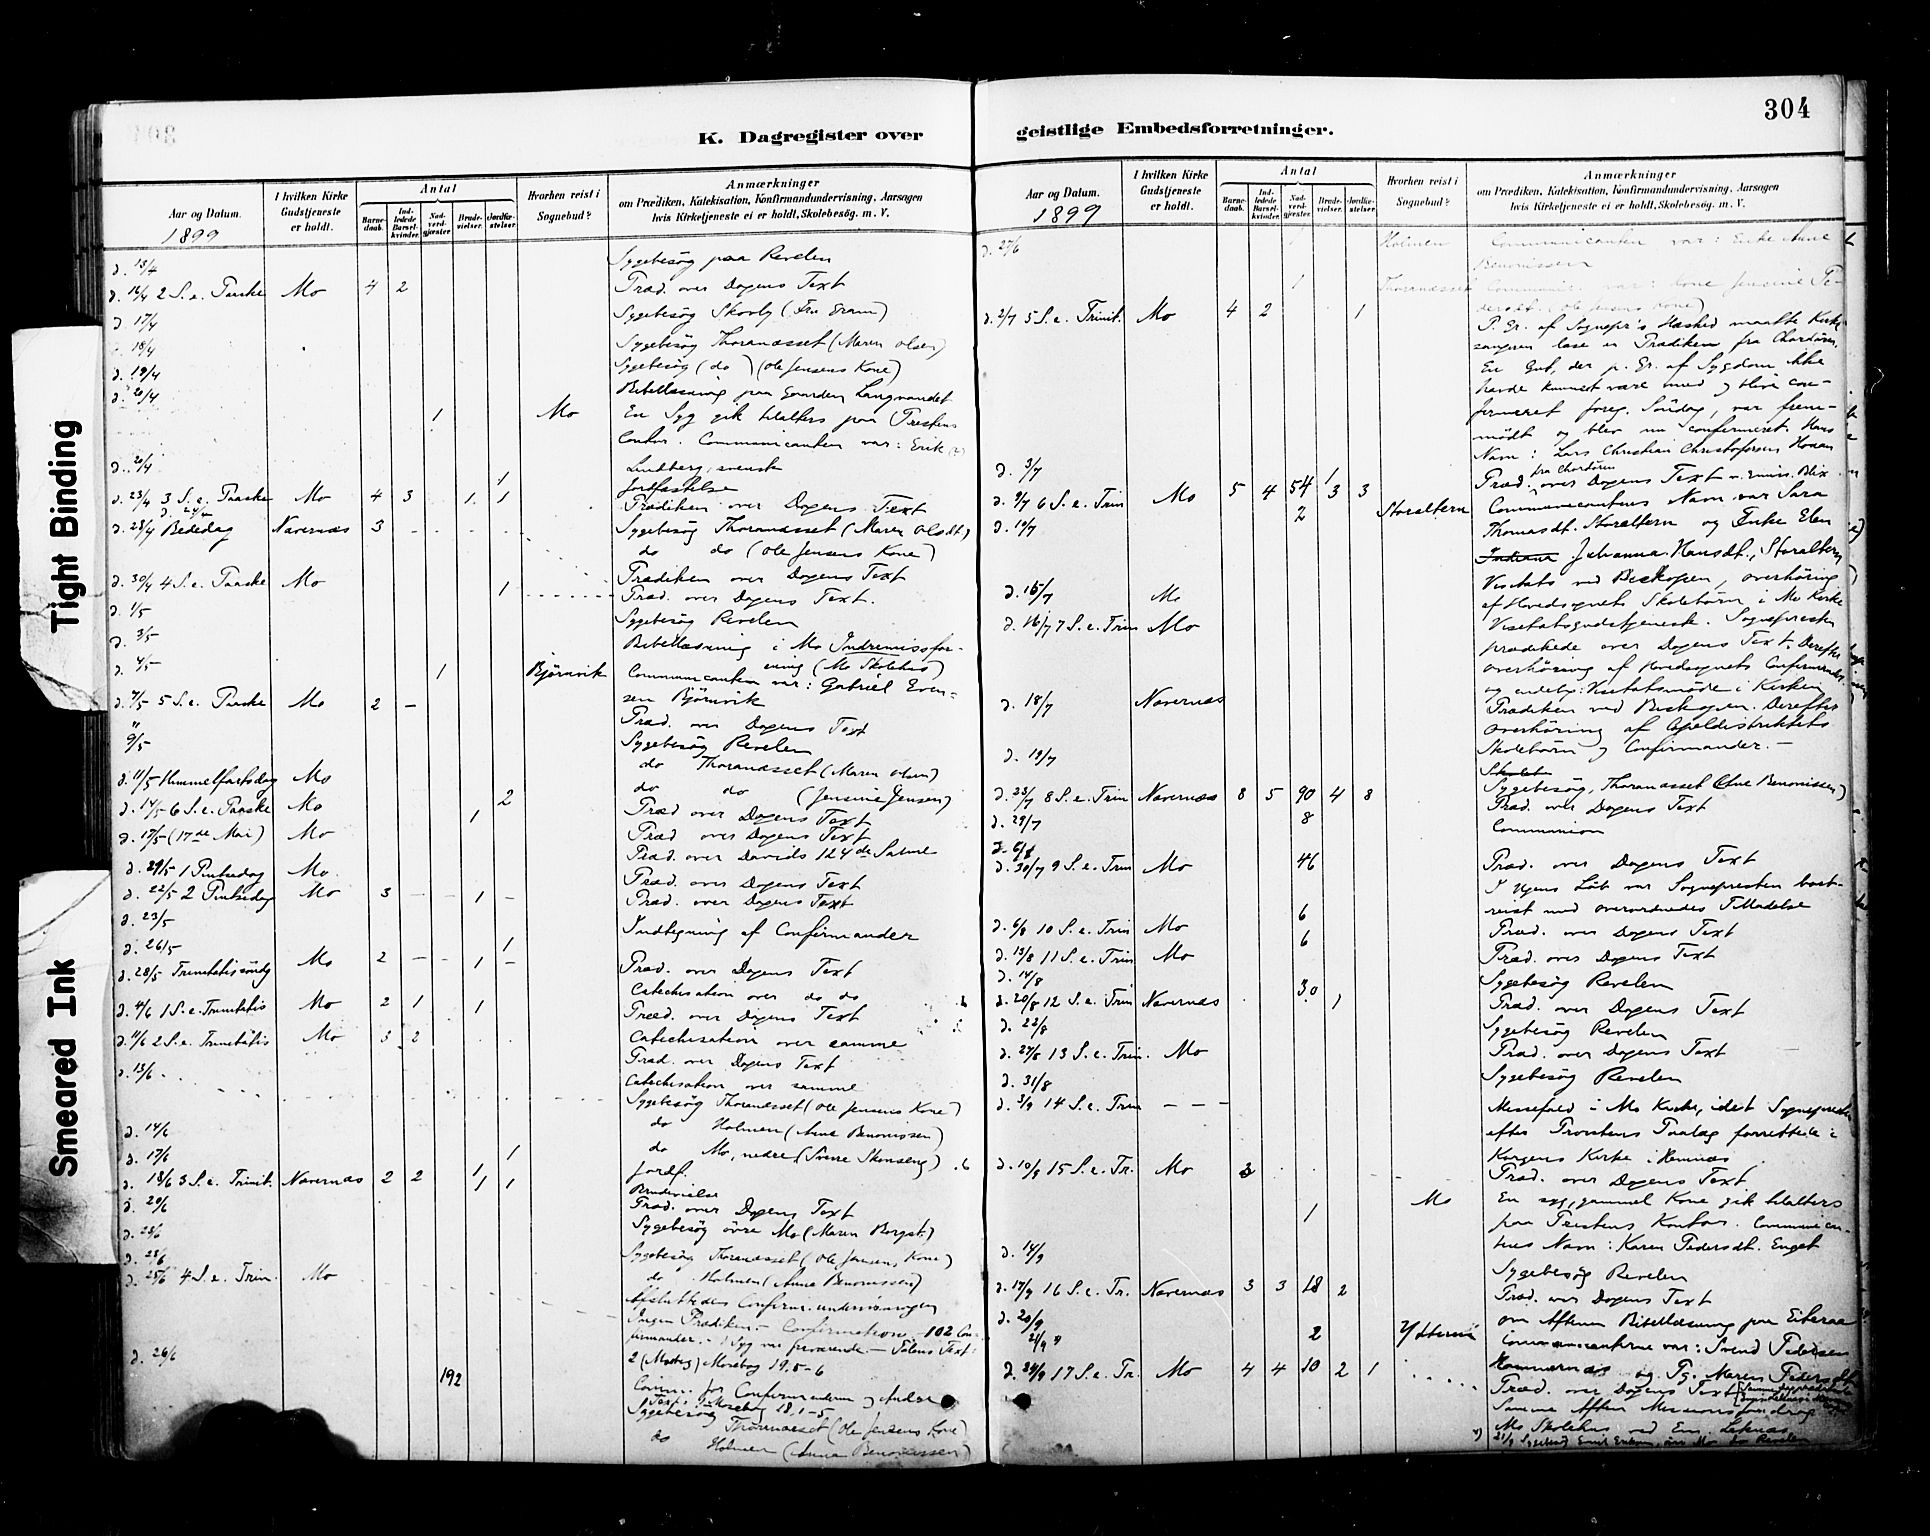 304
K. Dagregister over
geistlige Embedsforretninger.
Tight Binding
Smeared Ink
Aar og Datum.
1899
I hvilken Kirke
Gudstjeneste
er holdt.
Antal
Barne-
daab.
Ind-
ledede
Barsel-
kvinder.
Nad-
verd-
gjæster
Brude-
vielser.
Jordfæ-
stelser.
Hvorhen reist i
Sognebud?
Anmærkninger
om Prædiken, Katekisation, Konfirmandundervisning, Aarsagen
hvis Kirketjeneste ei er holdt, Skolebesøg. m. V.
Sygebesøg paa Revelen
d. 16/4 2 S. e. Paaske Mo 4 2 Præd. over Dagens Text
d. 17/4 Sygebesøg Skovly
18/4 Sygebesøg Thoranæsset (Maren Olsen)
d. 19/4 Sygebesøg (do) (Ole Jensens Kone)
d. 20/4 Bibellæsning paa Gaarden Langvandet
1 Mo En Syg gik til alters paa Prestens
Contor. Communicanten var: Erik
Lindberg, svensk
1 Jordfæstelse
d. 23/4 3 S. e. Paaske Mo 4 3 1 1 Prædiken over Dagens Text
Sygebesøg Thoranæsset (Maren Olsdt)
d. 28/4 Bededag Nævernæs 3 do do (Ole Jensens Kone)
Prædiken over Dagens Text
d. 30/4 4 S. e. Paaske Mo 1 Præd. over Dagens Text.
d. 1/5 Sygebesøg Revelen
d. 3/5 Bibellæsning i Mo Indremissfor-
ening (Mo Skolehus)
d. 4/5 1 Bjørnvik Communicanten var: Gabriel Even-
sen Bjørnvik
d. 7/5 5 S. e. Paaske Mo 2 - Præd. over Dagens Text
9/5 Sygebesøg Revelen
do Thoranæsset (Maren Olsen)
do do (Jensine Jensen)
d. 11/5 Himmelfartsdag Mo Præd over Dagens Text
d. 14/5 6 S. e. Paaske Mo 2 Præd over Dagens Text
d. 17/5 (17de Mai) Mo 1 Præd. over Davids 124de Salme
1 Pintsedag Mo. Præd. over Dagens Text
d. 22/5 2 Pintsedag Mo 3 - - 1 - Præd. over Dagens Text
d. 23/5 Indtegning af Confirmander
d. 26/5 1
d. 28/5 Trinitatissøndg Mo 2 - - 1 - Præd. over Dagens Text
Catechisation over do do
d. 4/6 1 S. e. Trinitatis Mo 2 1 1 Præd. over Dagens Text
Catechisation over samme
d. 11/6 2 S. e. Trinitatis Mo 3 2 Præd. over Dagens Text
Catechisation over samme
d. 13/6 Sygebesøg Thoranæsset (Ole Jensens Kone)
do Holmen (Anne Benonissen)
do Mo, nedre
d. 14/6
d. 17/6 1 Jordf.
Brudevielse
d. 18/6 3 S. e. Trinit. Nævernæs 2 2 1 1 Præd. over Dagens Text
d. 20/6 Sygebesøg øvre Mo
Sygebesøg Thoranæsset (Ole Jensens Kone)
do Holmen (Anne Benonissen)
Afsluttedes Confirm. undervisningen
d. 25/6 4 S. e. Trin. Mo Ingen Prædiken - Confirmation. 102 Con-
firmander.
d. 26/6 2 (Moses) Mosebog 19, 5-6
192 Comm. for Confirmanderne og Andre
Mosebog 18, 1-5
Sygebesøg Thoranæsset (Ole Jensens Kone)
do Holmen (Anna Benonissen)
Aar og Datum.
1899
I hvilken Kirke
Gudstjeneste
er holdt.
Antal
Barne-
daab.
Ind-
ledede
Barsel-
kvinder.
Nad-
verd-
gjæster
Brude-
vielser.
Jordfæ-
stelser.
Hvorhen reist i
Sognebud?
Anmærkninger
om Prædiken, Katekisation, Konfirmandundervisning, Aarsagen
hvis Kirketjeneste ei er holdt, Skolebesøg. m. V.
d. 27/6 Holmen Communicanten var: Enke Anne
Benonissen
1 Thoranæsset Communic. var: Kone Jensine Pe-
dersdt. (Ole Jensens Kone)
d. 2/7 5 S. e. Trinit. Mo 4 2 1 P. Gr. af Sognepr's Hæshed maatte Kirke-
sangeren læse en Prædiken fra Chordøren.
En Gut, der p. Gr. af Sygdom ikke
havde kunnet være med og blive con-
firmeret foreg. Søndag, var frem-
mødt og blev nu confirmeret. Hans
Navn: Lars Christian Christofersen
d. 3/7
fra Chordøren
d. 9/7 6 S. e. Trin Mo 5 4 54 3 3 Præd. over Dagens Text
2 Storalteren Communicantens Navn var Sara
Thomasdt. Storalteren og Enke Elen
Johanna Hansdt., Storalteren
d. 15/7 Mo Visitats ved Biskopen, overhøring
af Hovedsognets Skolebørn i Mo Kirke
d. 16/7 7 S. e. Trin Mo Visitatsgudstjeneste. Sognepresten
prædikede over Dagens Text. Derefter
overhøring af Hovedsognets Confirmander
og endelig Visitatsmøde i Kirken
d. 18/7 Nævernæs Prædiken ved Biskopen. Derefter
overhøring af Capeldistriktets
Skolebørn og Confirmander. -
d. 19/7 Sygebesøg, Thoranæsset
8 S. e. Trin Nævernæs 8 5 90 4 8 Præd. over Dagens Text
d. 29/7 8 Communion
d. 30/7 9 S. e. Trin Mo 46 Præd. over Dagens Text
I Ugens Løb var Sognepresten bort-
reist med overordnedes Tilladelse
d. 6/8 10 S. e. Trin Mo 6 Præd. over Dagens Text
d. 13/8 11 S. e. Trin Mo 6 Præd. over Dagens Text
d. 14/8 Sygebesøg Revelen
d. 20/8 12 S. e. Trin Nævernæs 30 1 Præd. over Dagens Text
d. 22/8 Sygebesøg Revelen
d. 27/8 13 S. e. Trin. Mo Præd. over Dagens Text
d. 31/8 Sygebesøg Revelen
d. 3/9 14 S. e. Trin - - - Messefald i Mo Kirke, idet Sognepresten
efter Provstens Paalæg forrettede i
Korgens Kirke i Hemnæs
d. 10/9 15 S. e. Tr. Mo 3 Præd. over Dagens Text
1 Mo En syg, gammel Kone gik til alters
paa Prestens Kontor. Communican-
tens Navn: Karen Pedersdt. Enget
d. 14/9 Sygebesøg Revelen
d. 17/9 16 S. e. Tr. Nævernæs 3 3 18 2 Præd. over Dagens Text
d. 20/9 om Aftenen Bibellæsning paa
21/9 2 Ytteren Communicanterne var: Svend Pedersen
og Pg. Maren Pedersdt.
d. 24/9 17 S. e. Tr. Mo 4 4 10 2 1 Præd. over Dagens Text
Samme Aften Missionsforedrag
Mo Skolehus ved Em.